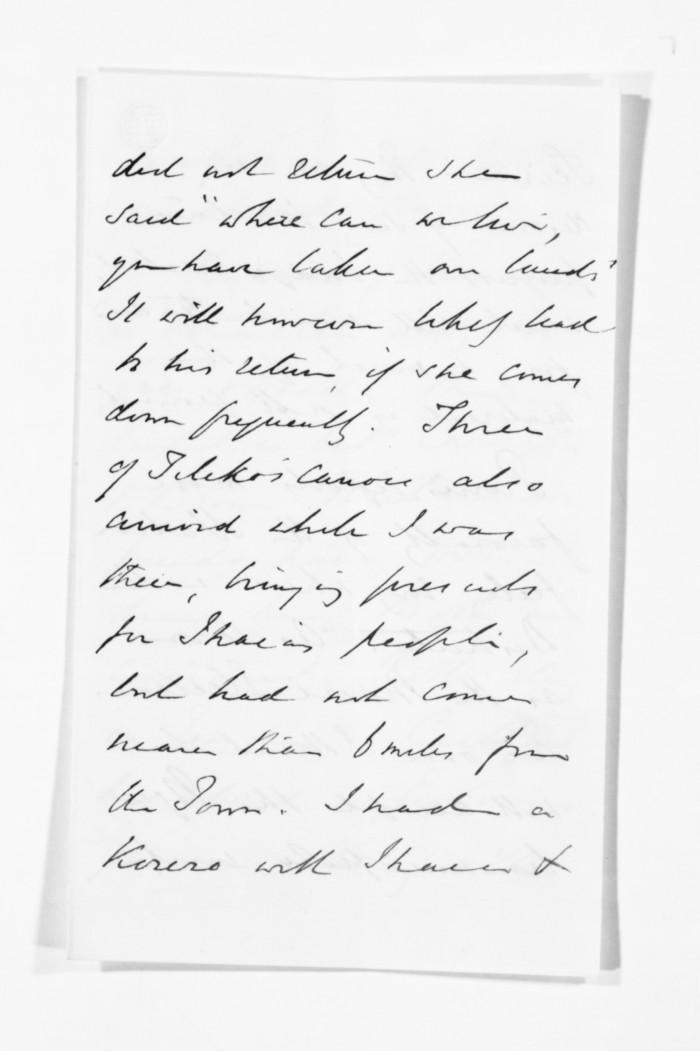 did not return she
said "where can we live,
you have taken our lands"
It will however likely lead
to his return, if she comes
down frequently. Three
of Titoko's canoes also
arrived while I was
there, bringing presents
for Ihaia's people,
but had not come
nearer than 6 miles from
the Town. I had a
Korero with Ihaia &